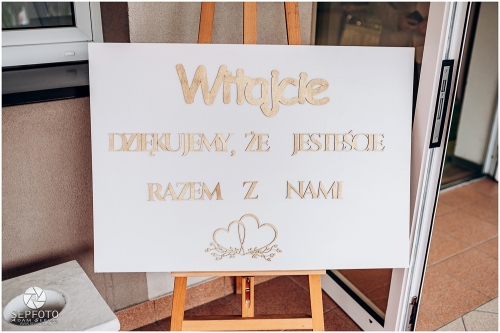 Witajcie
DZIĘKUJEMY, ŻE JESTEŚCIE
RAZEM Z NAMI
SEPFOTO